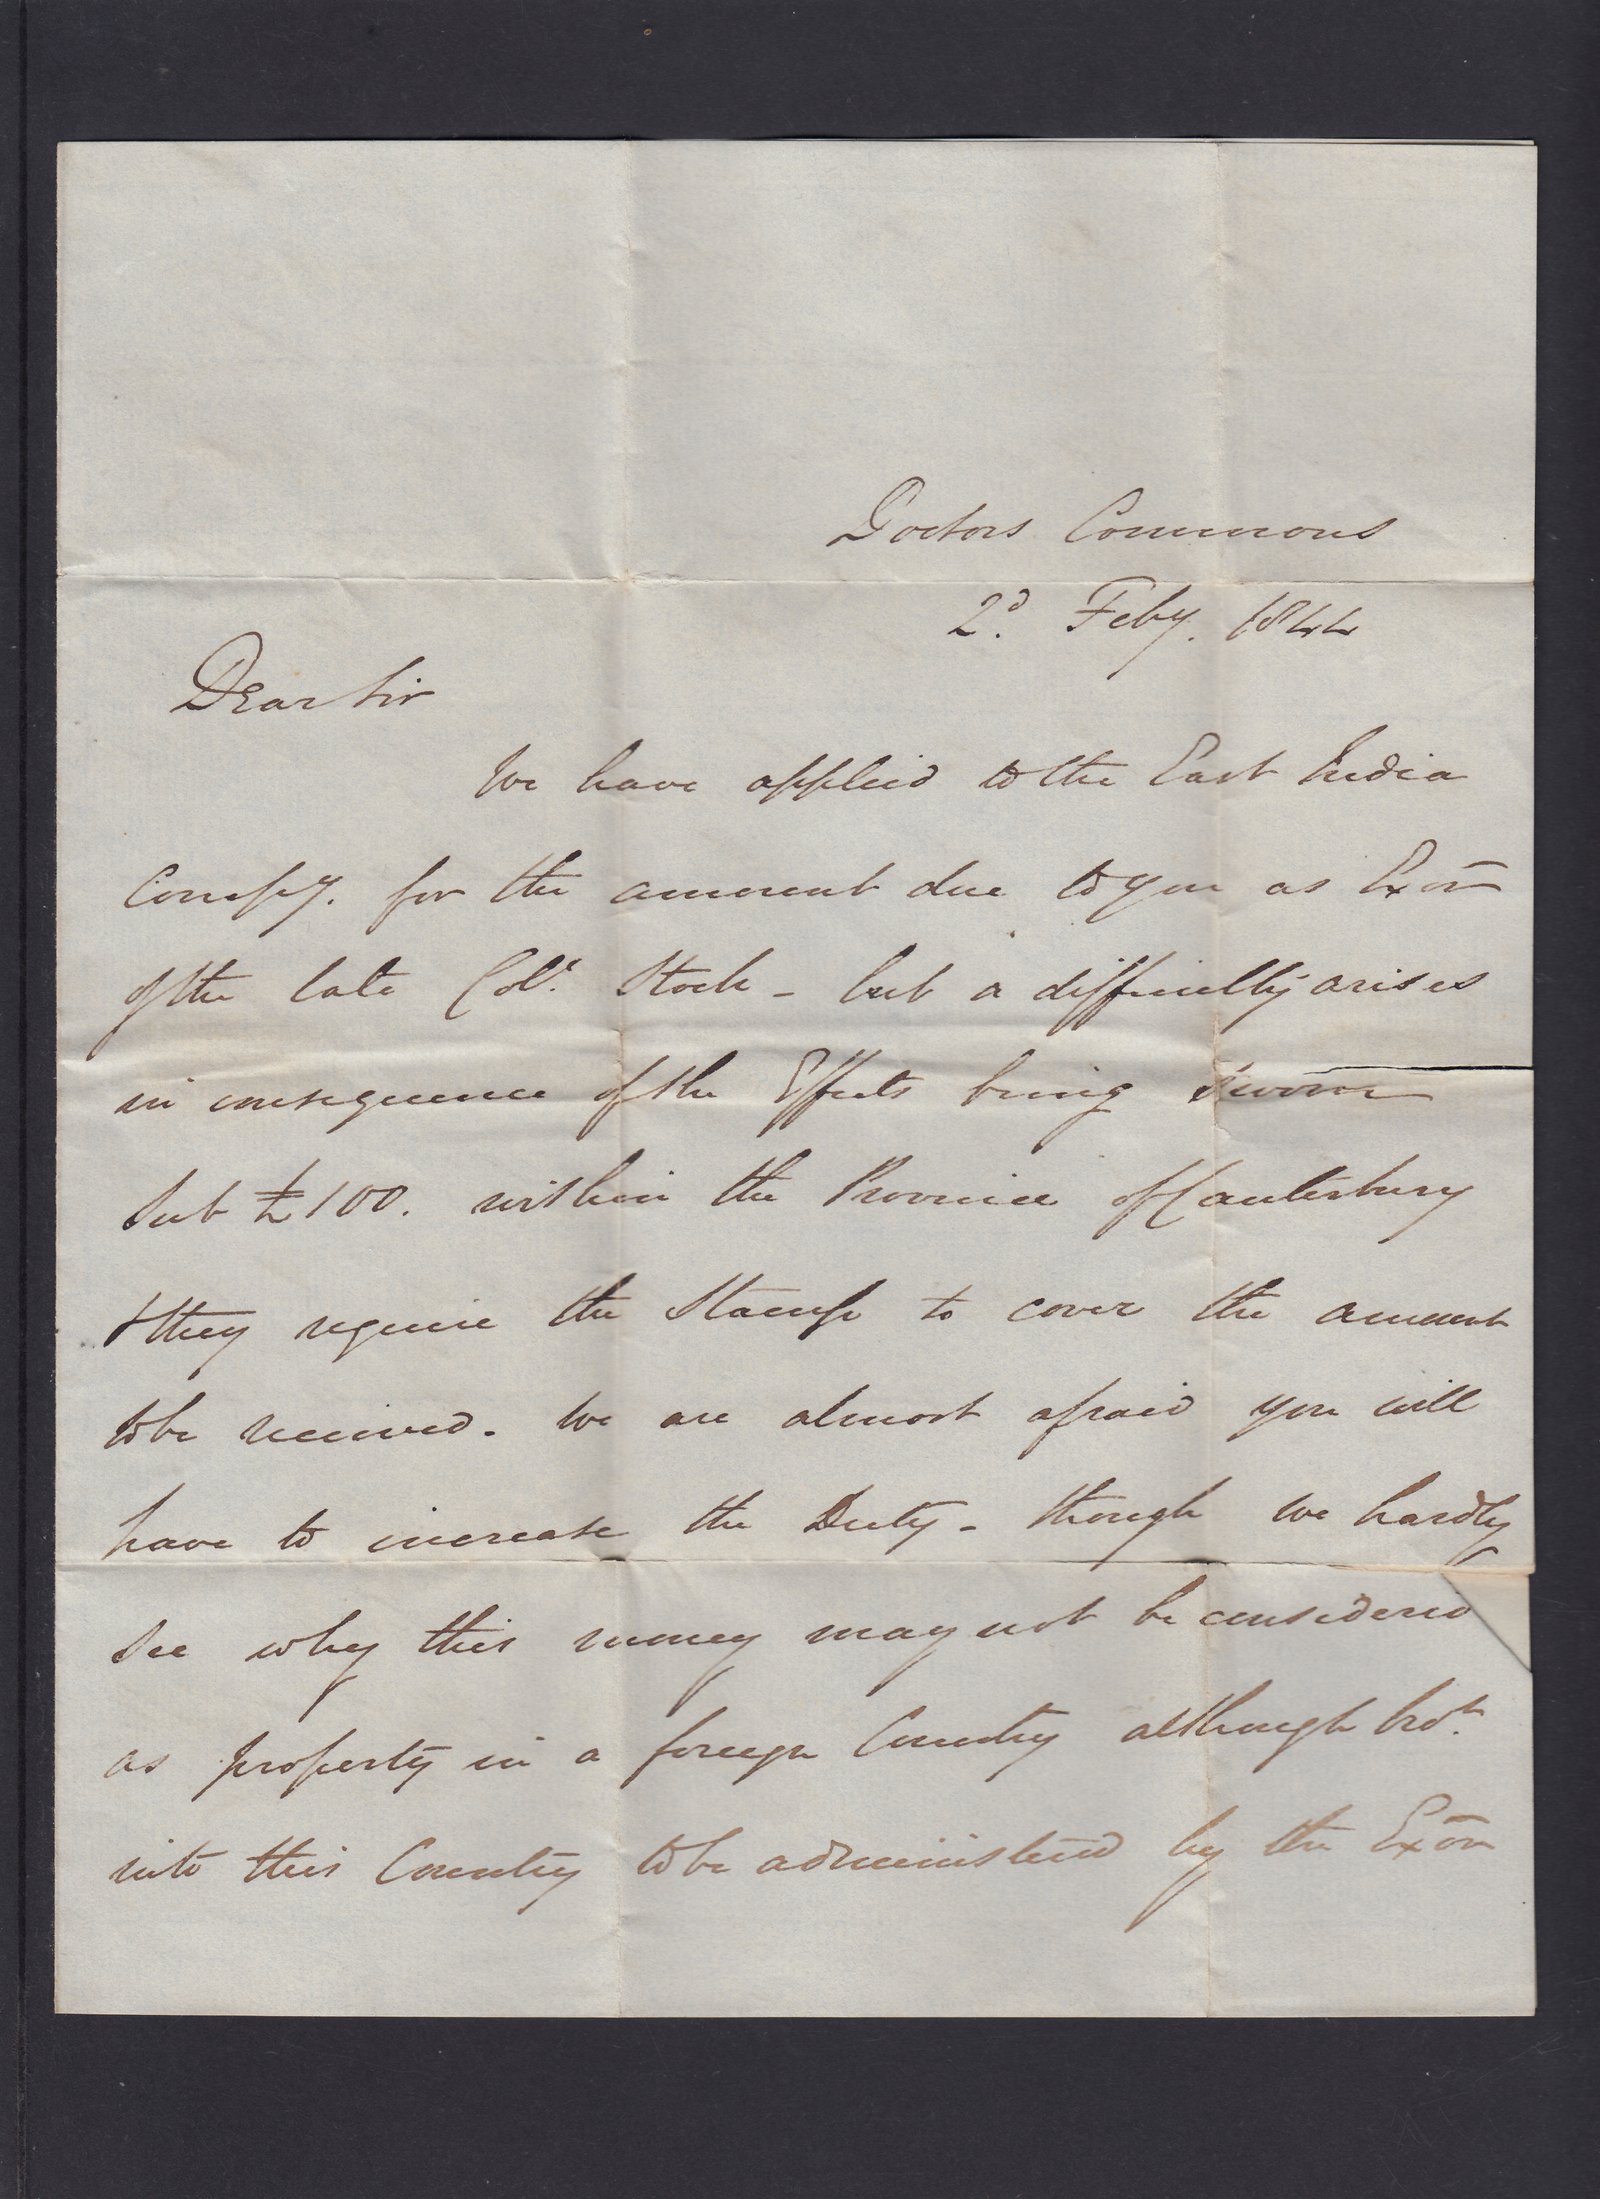 Doctors Commons
2d. Feby. 1844
Dear Sir
We have applied to the East India
Compy. for the amount due to you as Exor
of the late Coll. Stock - but a difficulty arises
in consequence of the Effects being sworn
sub £100. within the Province of Canterbury
& they require the Stamp to cover the amount
to be received. We are almost afraid you will
have to increase the Duty - though we hardly
see why this money may not be considered
as property in a foreign Country although brot.
into this Country to be administered by the Exor